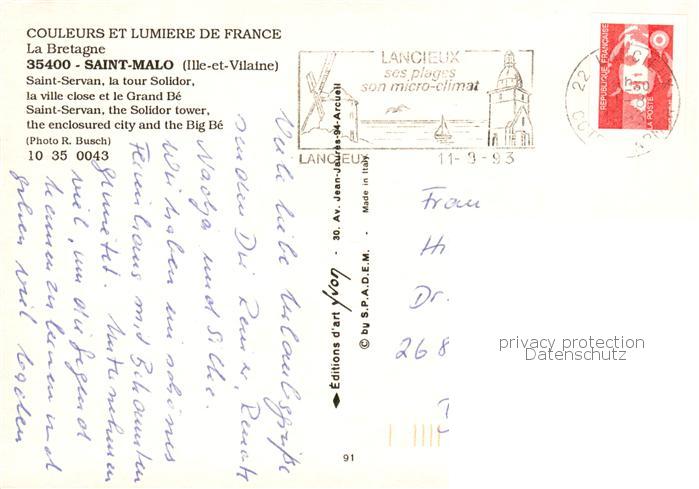 COULEURS ET LUMIERE DE FRANCE
La Bretagne
35400 - SAINT-MALO (Ille-et-Vilaine)
Saint-Servan, la tour Solidor,
la ville close et le Grand Bé
Saint-Servan, the Solidor tower,
the enclosured city and the Big Bé
(Photo R. Busch)
10 35 0043
LANCIEUX
ses plages
son micro-climat
LANCIEUX
11-9-93
22
REPUBLIQUE FRANÇAISE
LA POSTE
Viele liebe Urlaubsgrüße
senden Dir Renate
Nadja und Silke.
Wir haben ein schönes
Ferienhaus mit Bekannten
gemietet. Unternehmen
viel, um die Gegend
kennenzulernen und
gehen viel baden
Éditions d'art Jack - 30, Av. Jean-Jaurès-94-Arcueil
© by S.P.A.D.E.M. - Made in Italy
Frau
Hi
Dr.
268
91
privacy protection
Datenschutz